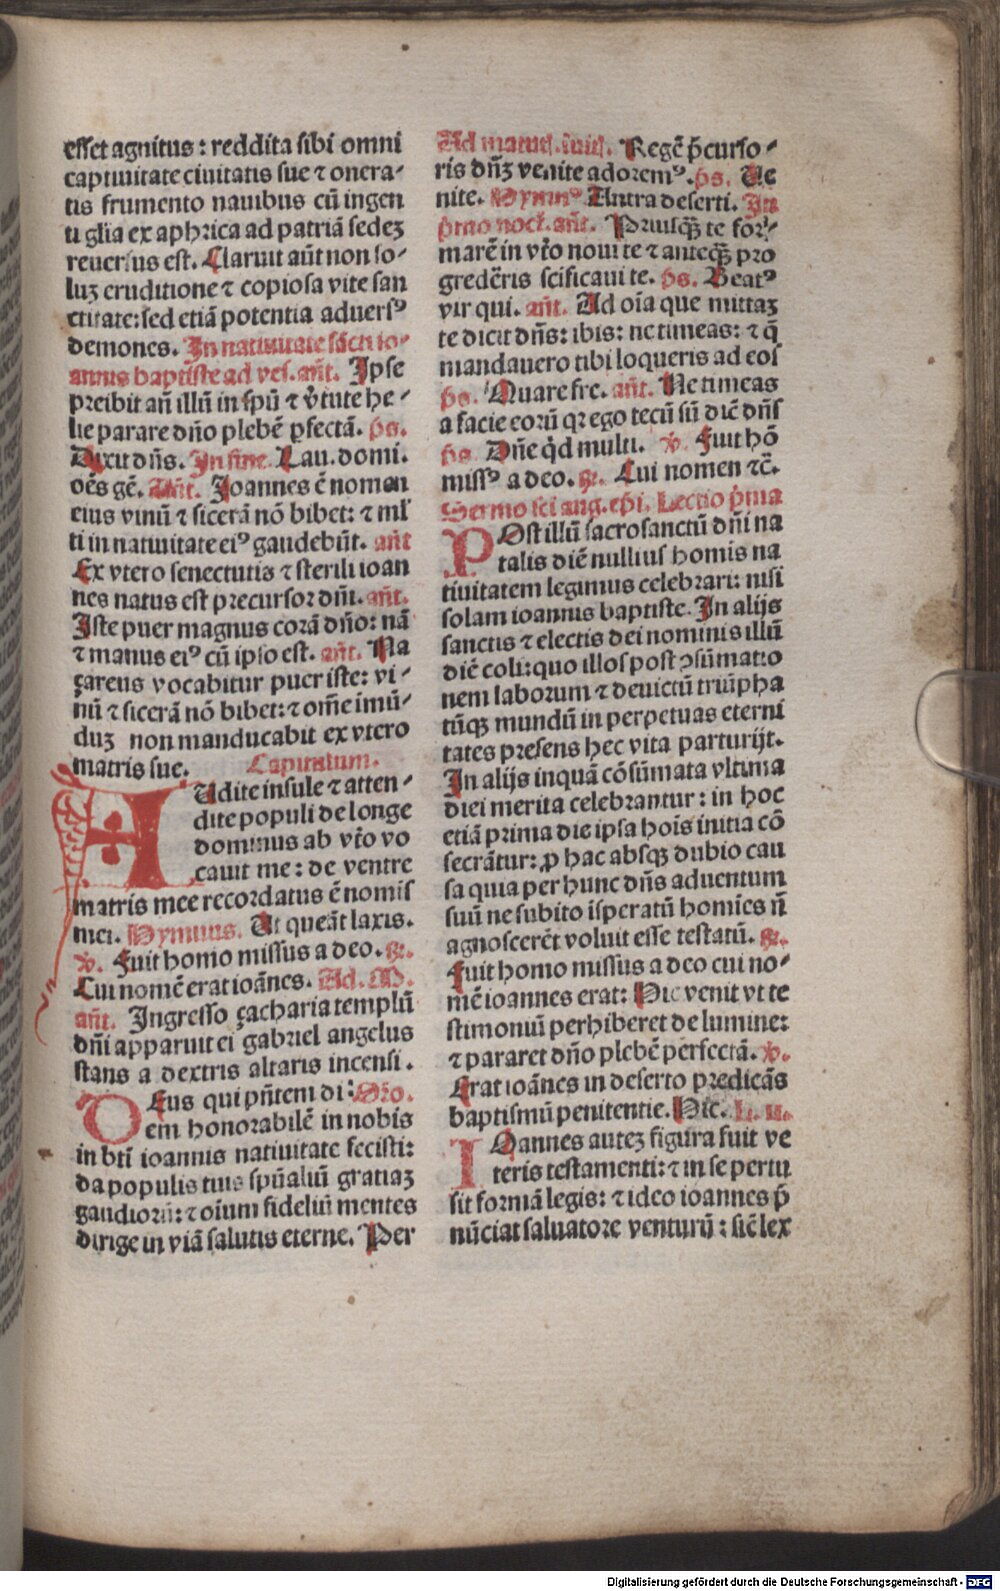 esset agnitus : reddita sibi omni
captiuitate ciuitatis sue ⁊ onera⸗
tis frumento nauibus cū ingen
ti glia ex aphrica ad patriā sedeꝫ
reuersus est. Claruit aūt non so⸗
luꝫ eruditione ⁊ copiosa vite san
ctitate: sed etiā potentia aduersꝰ
demones. In natiuitate sācti io⸗
annis baptiste ad ves. añt. Ipse
preibit añ illū in spū ⁊ v̄tute he⸗
lie parare dño plebē ꝑfectā. ps.
Dixit dñs. In fine. Lau. domi.
oēs gē. Añt. Joannes ē nomen
eius vinū ⁊ sicerā nō bibet: ⁊ ml̄
ti in natiuitate eiꝰ gaudebūt. añt
Ex vtero senectutis ⁊ sterili ioan
nes natus est precursor dñi. añt.
Iste puer magnus corā dño: nā
⁊ manus eiꝰ cū ipso est. añt. Na
çareus vocabitur puer iste: vi⸗
nū ⁊ sicerā nō bibet: ⁊ om̄e imū⸗
duꝫ non manducabit ex vtero
matris sue. Capitulum.
AUdite insule ⁊ atten⸗
dite populi de longe
dominus ab vt̄o vo
cauit me: de ventre
matris mee recordatus ē nomis
mei. Hymnus. Ut queāt laxis.
℣. Fuit homo missus a deo. ℟.
Cui nomē erat ioānes. Ad. M.
añt. Ingresso çacharia templū
dñi apparuit ei gabriel angelus
stans a dextris altaris incensi.
DEus qui pñtem di: Oro.
em honorabilē in nobis
in bti ioannis natiuitate fecisti:
da populis tuis spūaliū gratiaꝫ
gaudiorū: ⁊ oium fideliū mentes
dirige in viā salutis eterne. Per
Ad matut. inuit. Regē p̄curso⸗
ris dñꝫ venite adoremꝰ. ps. Ue
nite. Hymnꝰ Antra deserti. In
p̄mo noct. añt. Priusꝗ̄ te for⸗
marē in vt̄o noui te ⁊ anteꝗ̄ pro
gredēris scificaui te. ps. Beatꝰ
vir qui. añt. Ad oīa que mittaꝫ
te dicit dñs: ibis: ne timeas: ⁊ q̄
mandauero tibi loqueris ad eos
ps. Quare fre. añt. Ne timeas
a facie eorū qr ego tecū sū dic̄ dñs
ps Dñe qd multi. ℣. Fuit hō
missꝰ a deo. ℟. Cui nomen ⁊c̄.
Sermo sci aug. epi. Lectio p̄ma
POst illū sacrosanctū dñi na
talis diē nullius homis na
tiuitatem legimus celebrari: nisi
solam ioannis baptiste. In alijs
sanctis ⁊ electis dei nominis illū
diē coli: quo illos post ꝯsūmatio
nem laborum ⁊ deuictū triūpha
tūqꝫ mundū in perpetuas eterni
tates presens hec vita parturijt.
In alijs inquā cōsūmata vltima
diei merita celebrantur: in hoc
etiā prima die ipsa hois initia cō
secrātur: ꝓ hac absqꝫ dubio cau
sa quia per hunc dñs aduentum
suū ne subito isperatū homies ñ
agnoscerēt voluit esse testatū. ℟.
Fuit homo missus a deo cui no⸗
mē ioannes erat: Hic venit vt te
stimoniū perhiberet de lumine:
⁊ pararet dño plebē perfectā. ℣.
Erat ioānes in deserto predicās
baptismū penitentie. Hic. L. ii.
IOannes auteꝫ figura fuit ve
teris testamenti: ⁊ in se pertu
sit formā legis: ⁊ ideo ioannes p̄
nūciat saluatore venturū: sic̄ lex
Digitalisierung gefördert durch die Deutsche Forschungsgemeinschaft - DFG